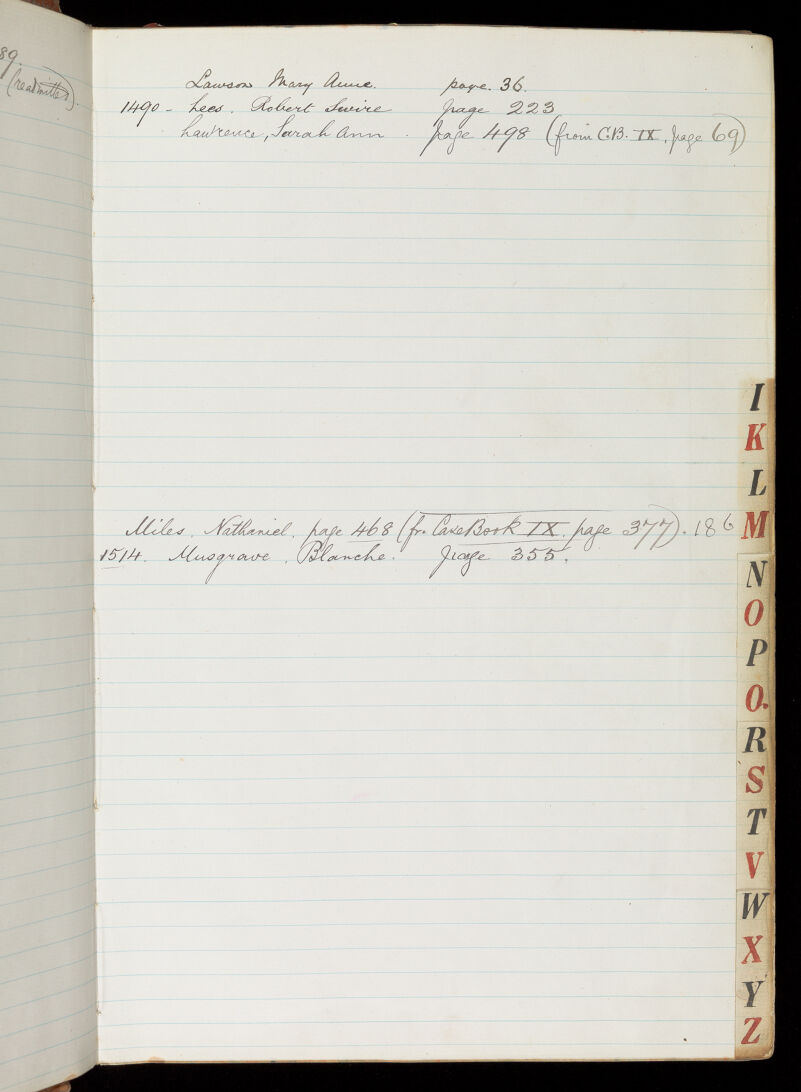 89.
(readmitted)
Lawson Mary Anne. page. 36.
1490 - Lees. Robert Swire page 223
Lawrence, Sarah Ann. page 498 (from C.B. IX, page 69)
Miles. Nathaniel. page 468 (fr. Case Book IX. page 377). 186
1514. Musgrave. Blanche. page 355.
I
K
L
M
N
O
P
Q.
R
S
T
V
W
X
Y
Z